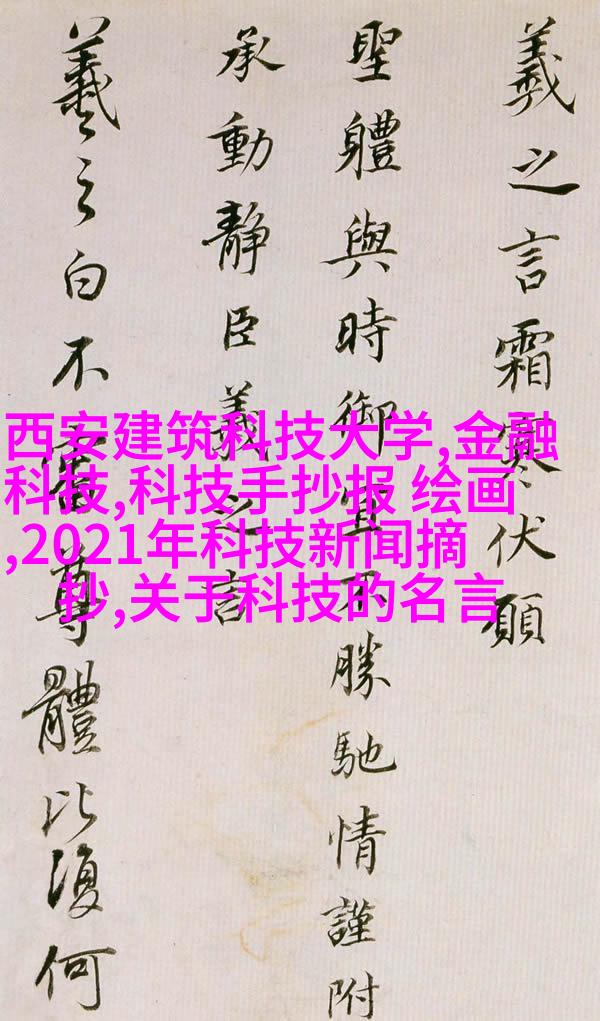 羲之言霜寒伏願
聖體與時御宜不勝馳情謹附
承動靜臣羲之言
羲之白不審尊體比復何
西安建筑科技大学,金融
科技,科技手抄报 绘画
,2021年科技新闻摘
抄,关于科技的名言